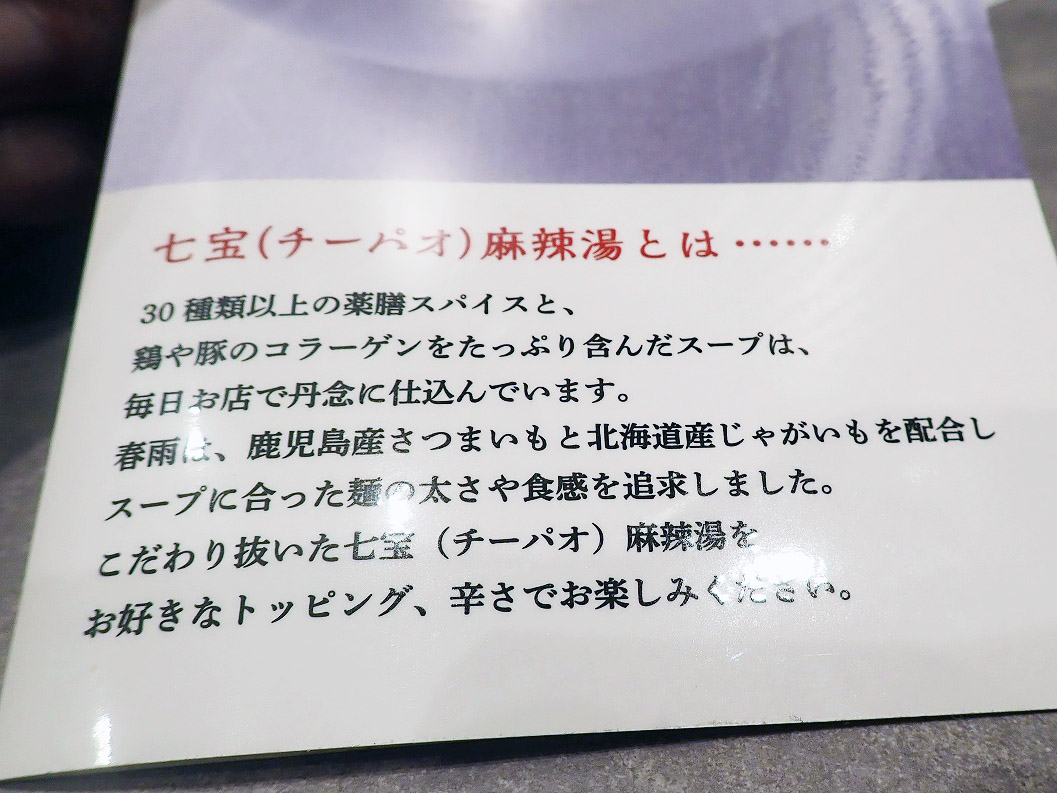 七宝(チーパオ)麻辣湯とは……
30種類以上の薬膳スパイスと、
鶏や豚のコラーゲンをたっぷり含んだスープは、
毎日お店で丹念に仕込んでいます。
春雨は、鹿児島産さつまいもと北海道産じゃがいもを配合し
スープに合った麺の太さや食感を追求しました。
こだわり抜いた七宝（チーパオ）麻辣湯を
お好きなトッピング、辛さでお楽しみください。